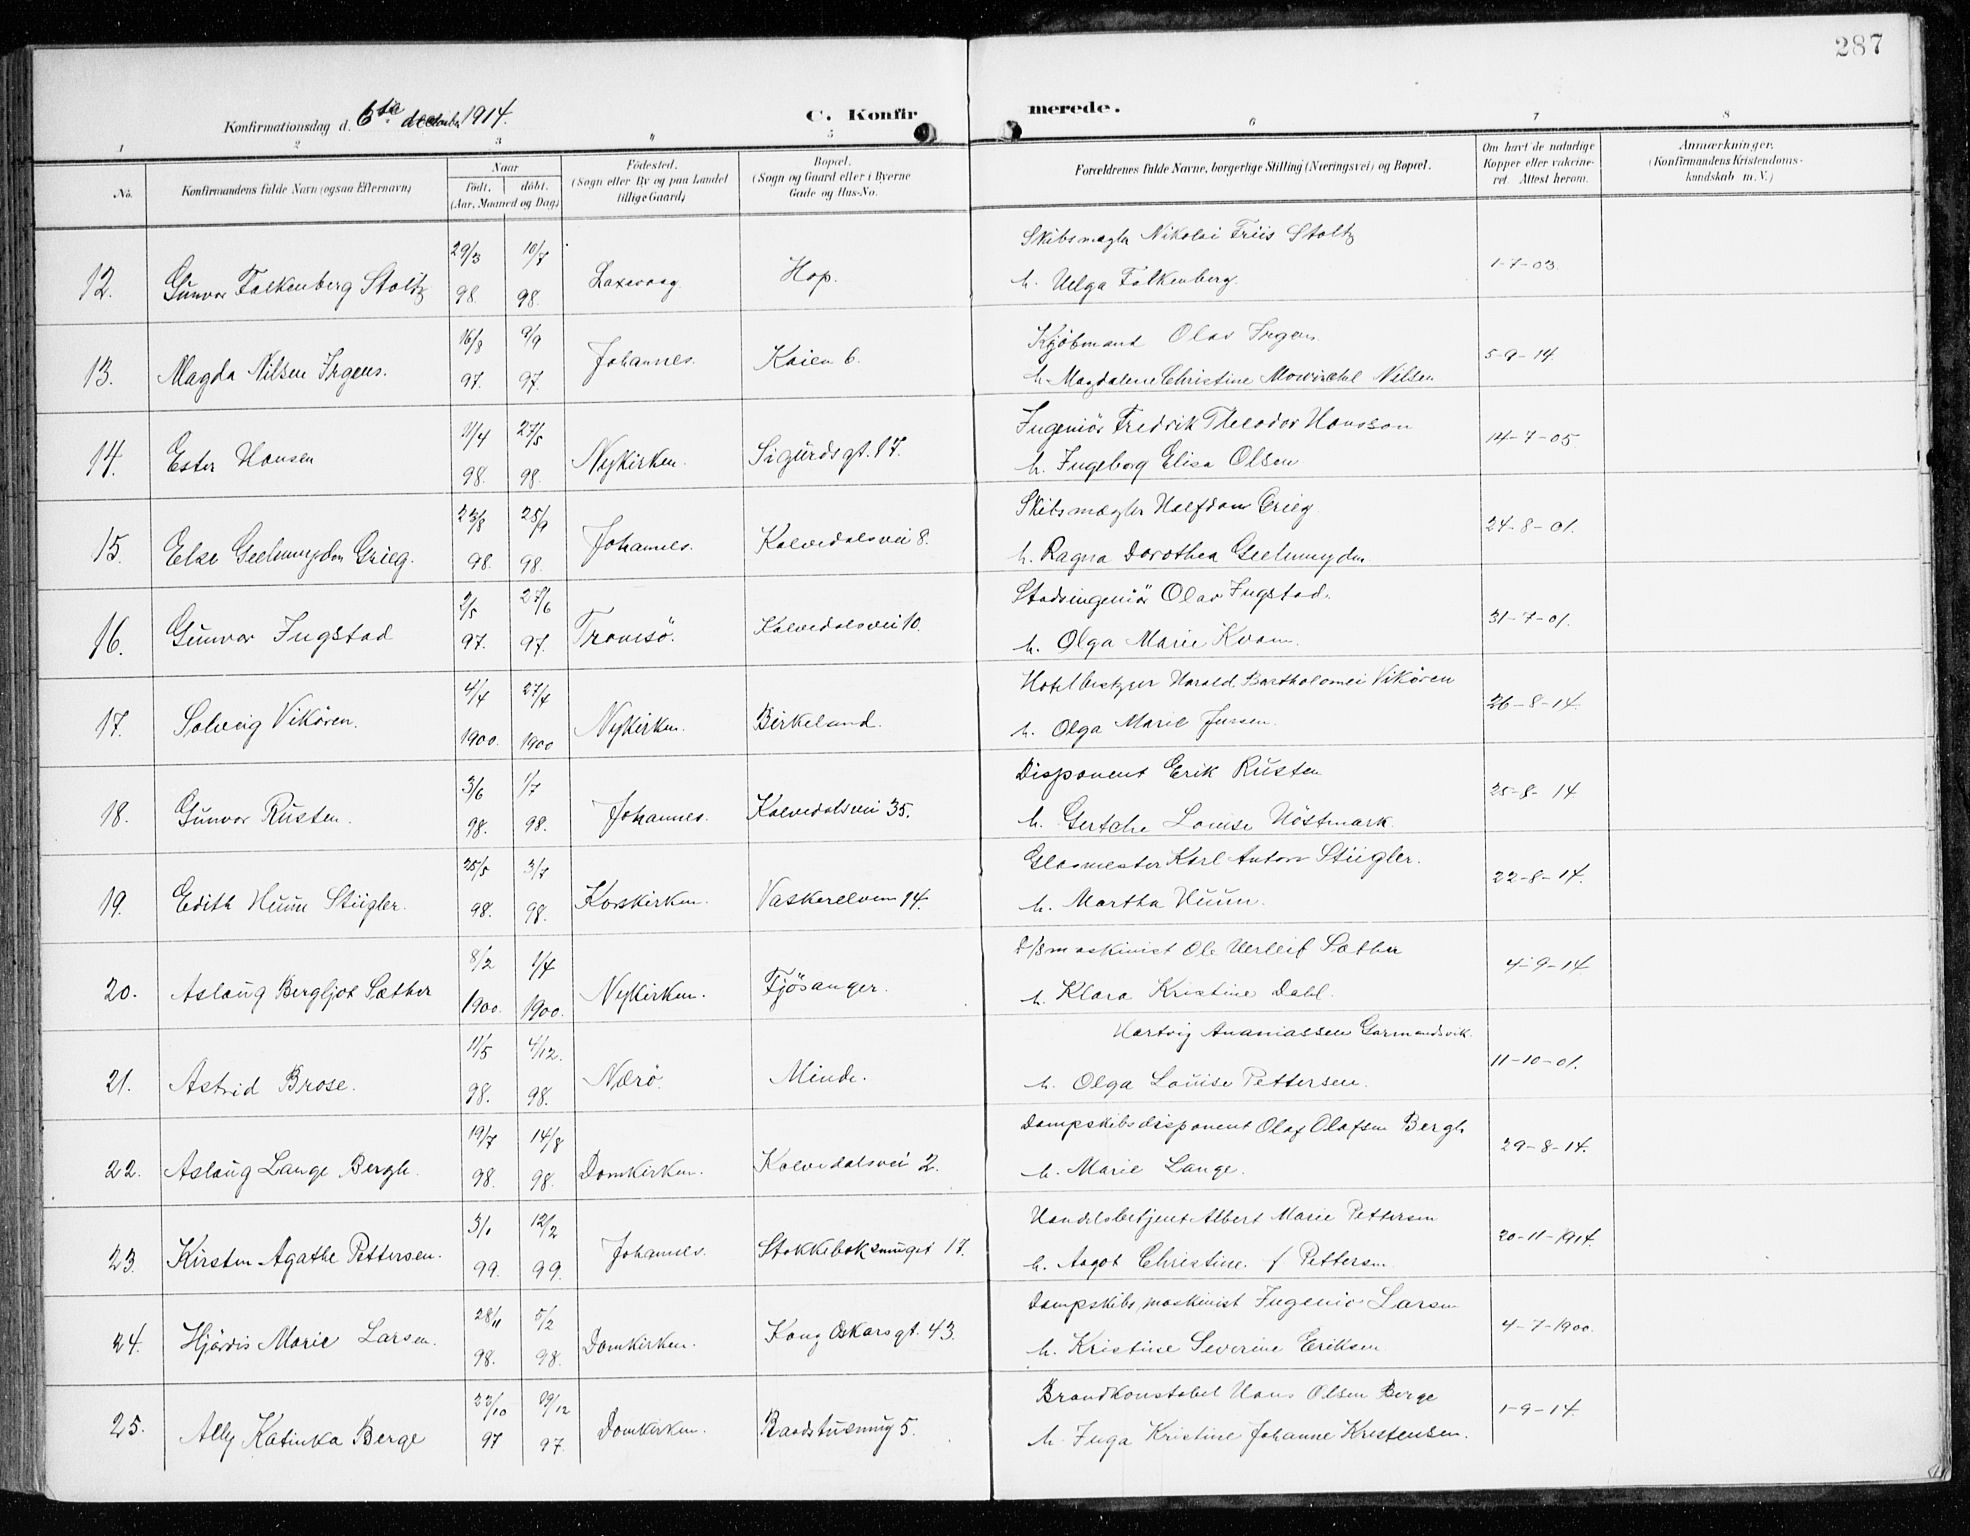 287
Konfirmationsdag d. 6te december 1914.
C. Konfirmerede.
1 2 3 4 5 6 7 8
No.
Konfirmandens fulde Navn (ogsaa Efternavn)
Naar
født. døbt.
(Aar, Maaned og Dag)
Fødested.
(Sogn eller By og paa Landet
tillige Gaard)
Bopæl.
(Sogn og Gaard eller i Byerne
Gade og Hus-No.
Forældrenes fulde Navne, borgerlige Stilling (Næringsvei) og Bopæl.
Om havt de naturlige
Kopper eller vakcine-
ret. Attest herom.
Anmærkninger.
(Konfirmandens Kristendoms-
kundskab m. V.)
29/3 10/7 Skibsmægler Nikolai Friis Stoltz
12. Gunvor Falkenberg Stoltz 98. 98. Laxevaag Hop. h. Helga Falkenberg. 1-7-03.
16/8 9/9 Kjøbmand Olav Irgens
13. Magda Nilsen Irgens. 97. 97. Johannes. Kaien 6. h. Magdalene Christine Nilsen 5-9-14.
11/4 27/5 Ingeniör Fredrik Theodor Hansson
14. Ester Hansen 98. 98. Nykirken. Sigurdsgt. 17. h. Ingeborg Elisa Olsen 14-7-05
23/8 25/9 Skibsmægler Halfdan Grieg
15. Else Geelmuyden Grieg. 98. 98. Johannes. Kalvedalsvei 8. h. Ragna Dorothea Geelmuyden 24-8-01.
2/5 27/6 Stadsingeniör Olav Ingstad.
16. Gunvor Ingstad 97. 97. Tromsö. Kalvedalsvei 10. h. Olga Marie Kvam. 31-7-01.
4/4 27/4 Hotelbestyrer Harald Bartholomei Vikören
17. Solveig Vikören. 1900. 1900 Nykirken. Birkeland. h. Olga Marie Jensen. 26-8-14.
3/6 1/7 Disponent Erik Rusten
18. Gunvor Rusten. 98. 98. Johannes. Kalvedalsvei 35. h. Gertche Louise Höstmark. 25-8-14
25/5 3/7 Glasmester Karl Anton Stügler.
19. Edith Huun Stügler. 98. 98. Korskirken. Vaskerelven 14. h. Martha Huun. 22-8-14.
8/2 1/4 D/Smaskinist Ole Herleif Sæther
20. Aslaug Bergljot Sæther 1900. 1900. Nykirken. Fjösanger. h. Klara Kristine Dahl. 4-9-14
11/5 4/12. Hartvig Ananiassen Garmandsvik.
21. Astrid Brose. 98. 98. Nærö. Minde. h. Olga Louise Pettersen. 11-10-01.
19/7 14/8 Dampskibsdisponent Olaf Olafsen Bergh
22. Aslaug Lange Bergh. 98. 98. Domkirken. Kalvedalsvei 2. h. Marie Lange. 29-8-14.
3/1 12/2 Handelsbetjent Albert Marie Pettersen
23. Kirsten Agathe Pettersen. 99. 99. Johannes. Stokkebaksmuget 17. h. Aagot Christine f Pettersen 20-11-1914.
28/11 5/2 Dampskibsmaskinist Ingenio Larsen
24. Hjördis Marie Larsen. 98. 98. Domkirken. Kong Oskarsgt. 43. h. Kristine Severine Eriksen 4-7-1900.
22/10 19/12 Brandkonstabel Hans Olsen Berge
25. Ally Katinka Berge 97 97. Domkirken. Baadstusmug 5. h. Inga Kristine Johanne Kristensen. 1-9-14.